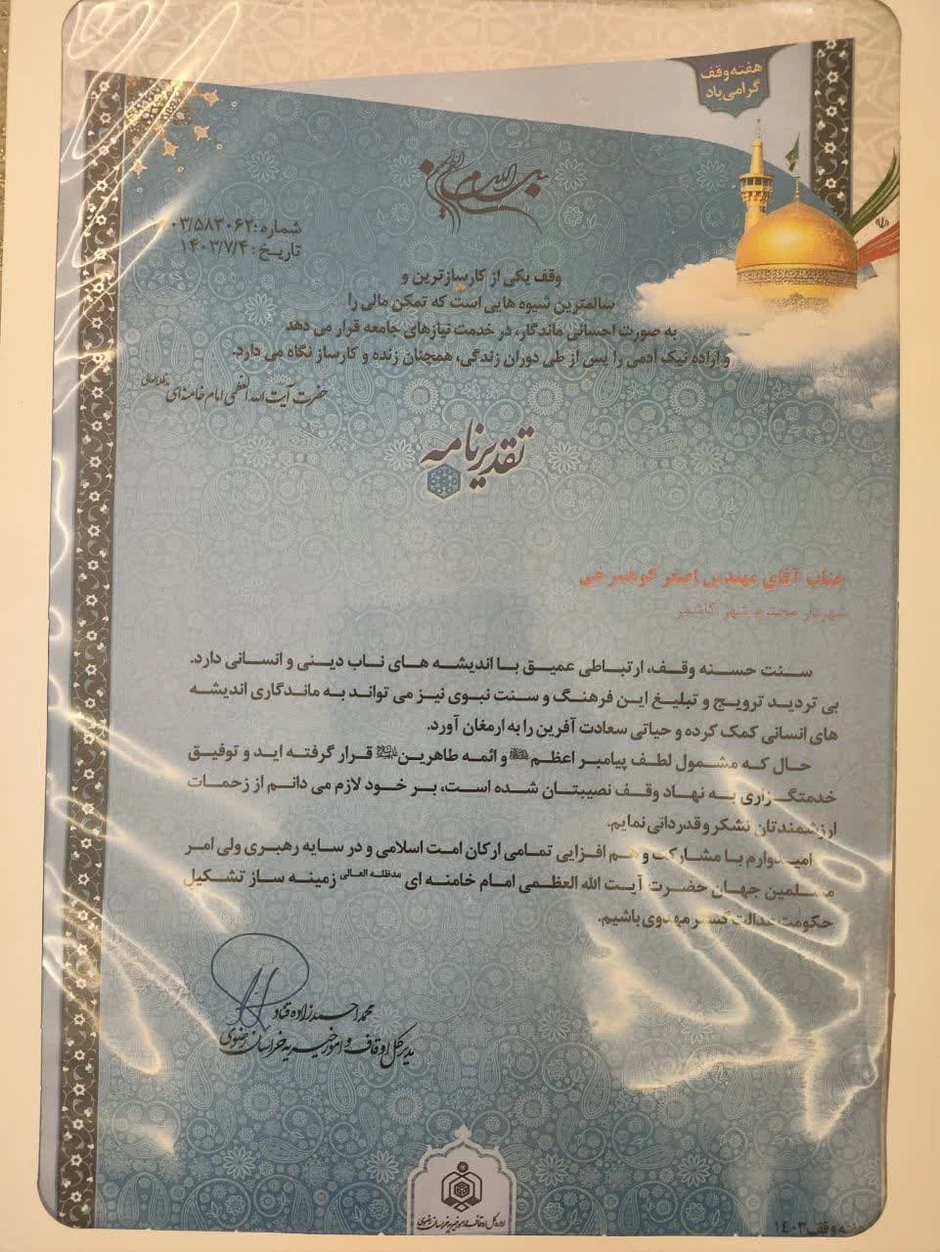 هفته وقف
گرامی باد
بسم الله الرحمن الرحیم
شماره: ۰۳/۵۸۳۰۶۲
تاریخ: ۱۴۰۳/۷/۴
وقف یکی از کارسازترین و
سالمترین شیوه هایی است که تمکن مالی را
به صورت احسانی ماندگار، در خدمت نیازهای جامعه قرار می دهد
و اراده نیک آدمی را پس از طی دوران زندگی، همچنان زنده و کارساز نگاه می دارد.
حضرت آیت الله العظمی امام خامنه ای مدظله العالی
تقدیرنامه
جناب آقای مهندس اصغر کوهسرخی
شهردار محترم شهر کاشمر
سنت حسنه وقف، ارتباطی عمیق با اندیشه های ناب دینی و انسانی دارد.
بی تردید ترویج و تبلیغ این فرهنگ و سنت نبوی نیز می تواند به ماندگاری اندیشه
های انسانی کمک کرده و حیاتی سعادت آفرین را به ارمغان آورد.
حال که مشمول لطف پیامبر اعظم ﷺ و ائمه طاهرین قرار گرفته اید و توفیق
خدمتگزاری به نهاد وقف نصیبتان شده است، بر خود لازم می دانم از زحمات
ارزشمندتان تشکر و قدردانی نمایم.
امیدوارم با مشارکت و هم افزایی تمامی ارکان امت اسلامی و در سایه رهبری ولی امر
مسلمین جهان حضرت آیت الله العظمی امام خامنه ای مدظله العالی زمینه ساز تشکیل
حکومت عدالت گستر مهدوی باشیم.
محمد احمدزاده قناد
مدیر کل اوقاف و امور خیریه خراسان رضوی
اداره کل اوقاف و امور خیریه خراسان رضوی
هفته وقف ۱۴۰۳